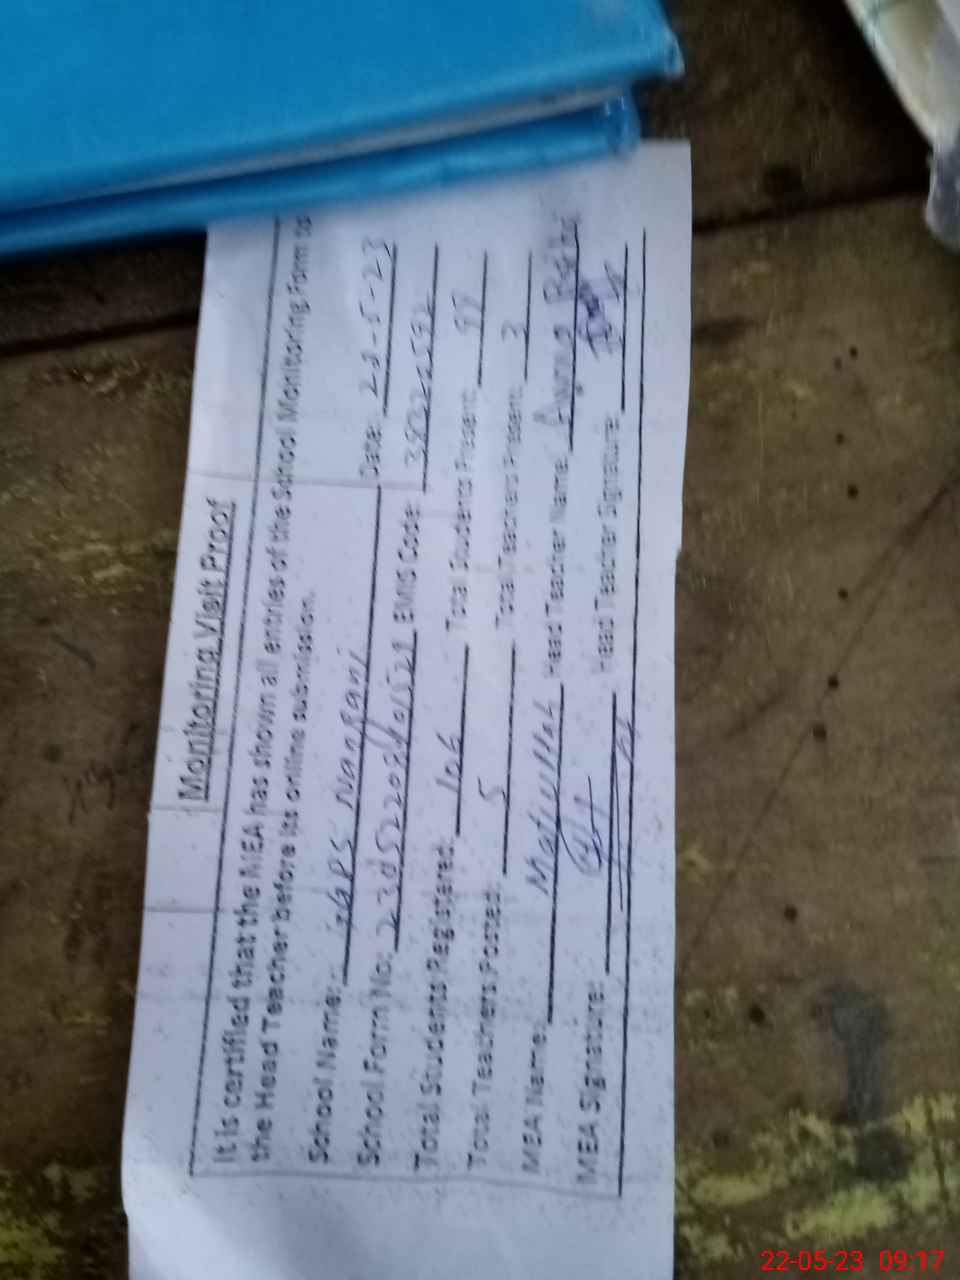 Monitoring Visit Proof
It is certified that the MEA has shown all entries of the School Monitoring Form to
the Head Teacher before its online submission.
School Name: Date: 22-5-23
School Form No: EMIS Code:
Total Students Registered: 106 Total Students Present: 97
Total Teachers Posted: 5 Total Teachers Present: 3
MEA Name: Matiullah Head Teacher Name:
MEA Signature: Head Teacher Signature:
22-05-23 09:17